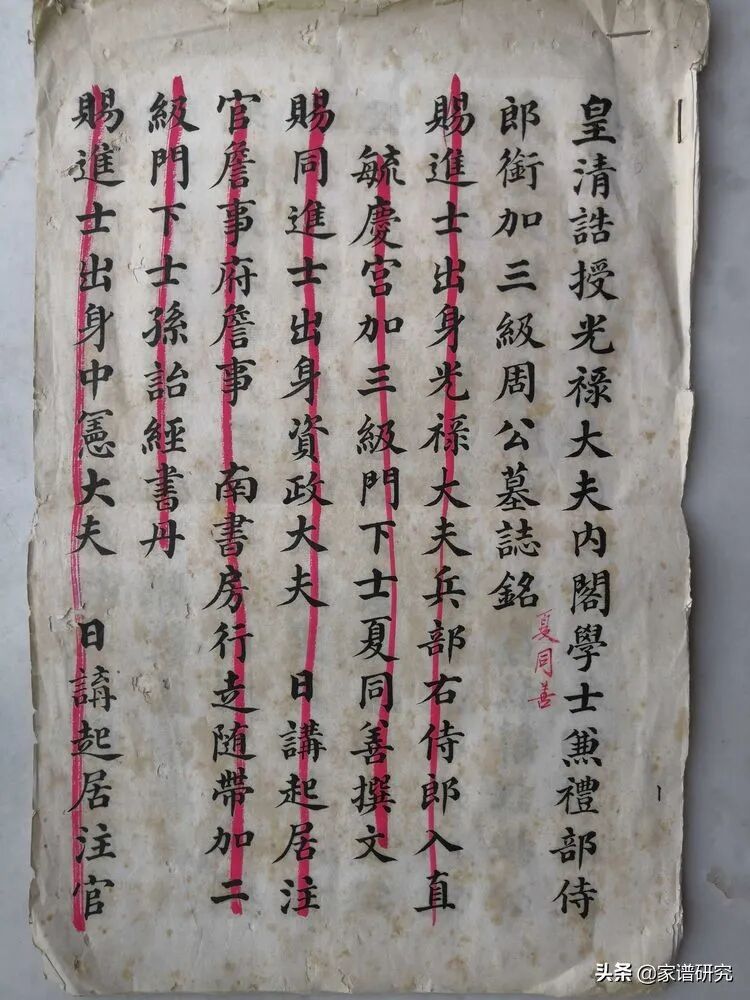 皇清誥授光祿大夫內閣學士兼禮部侍
郎銜加三級周公墓誌銘
夏同善
賜進士出身光祿大夫兵部右侍郎入直
毓慶宮加三級門下士夏同善撰文
賜同進士出身資政大夫 日講起居注
官詹事府詹事 南書房行走随帶加二
級門下士孫詒經書丹
賜進士出身中憲大夫 日講起居注官
头条 @家谱研究